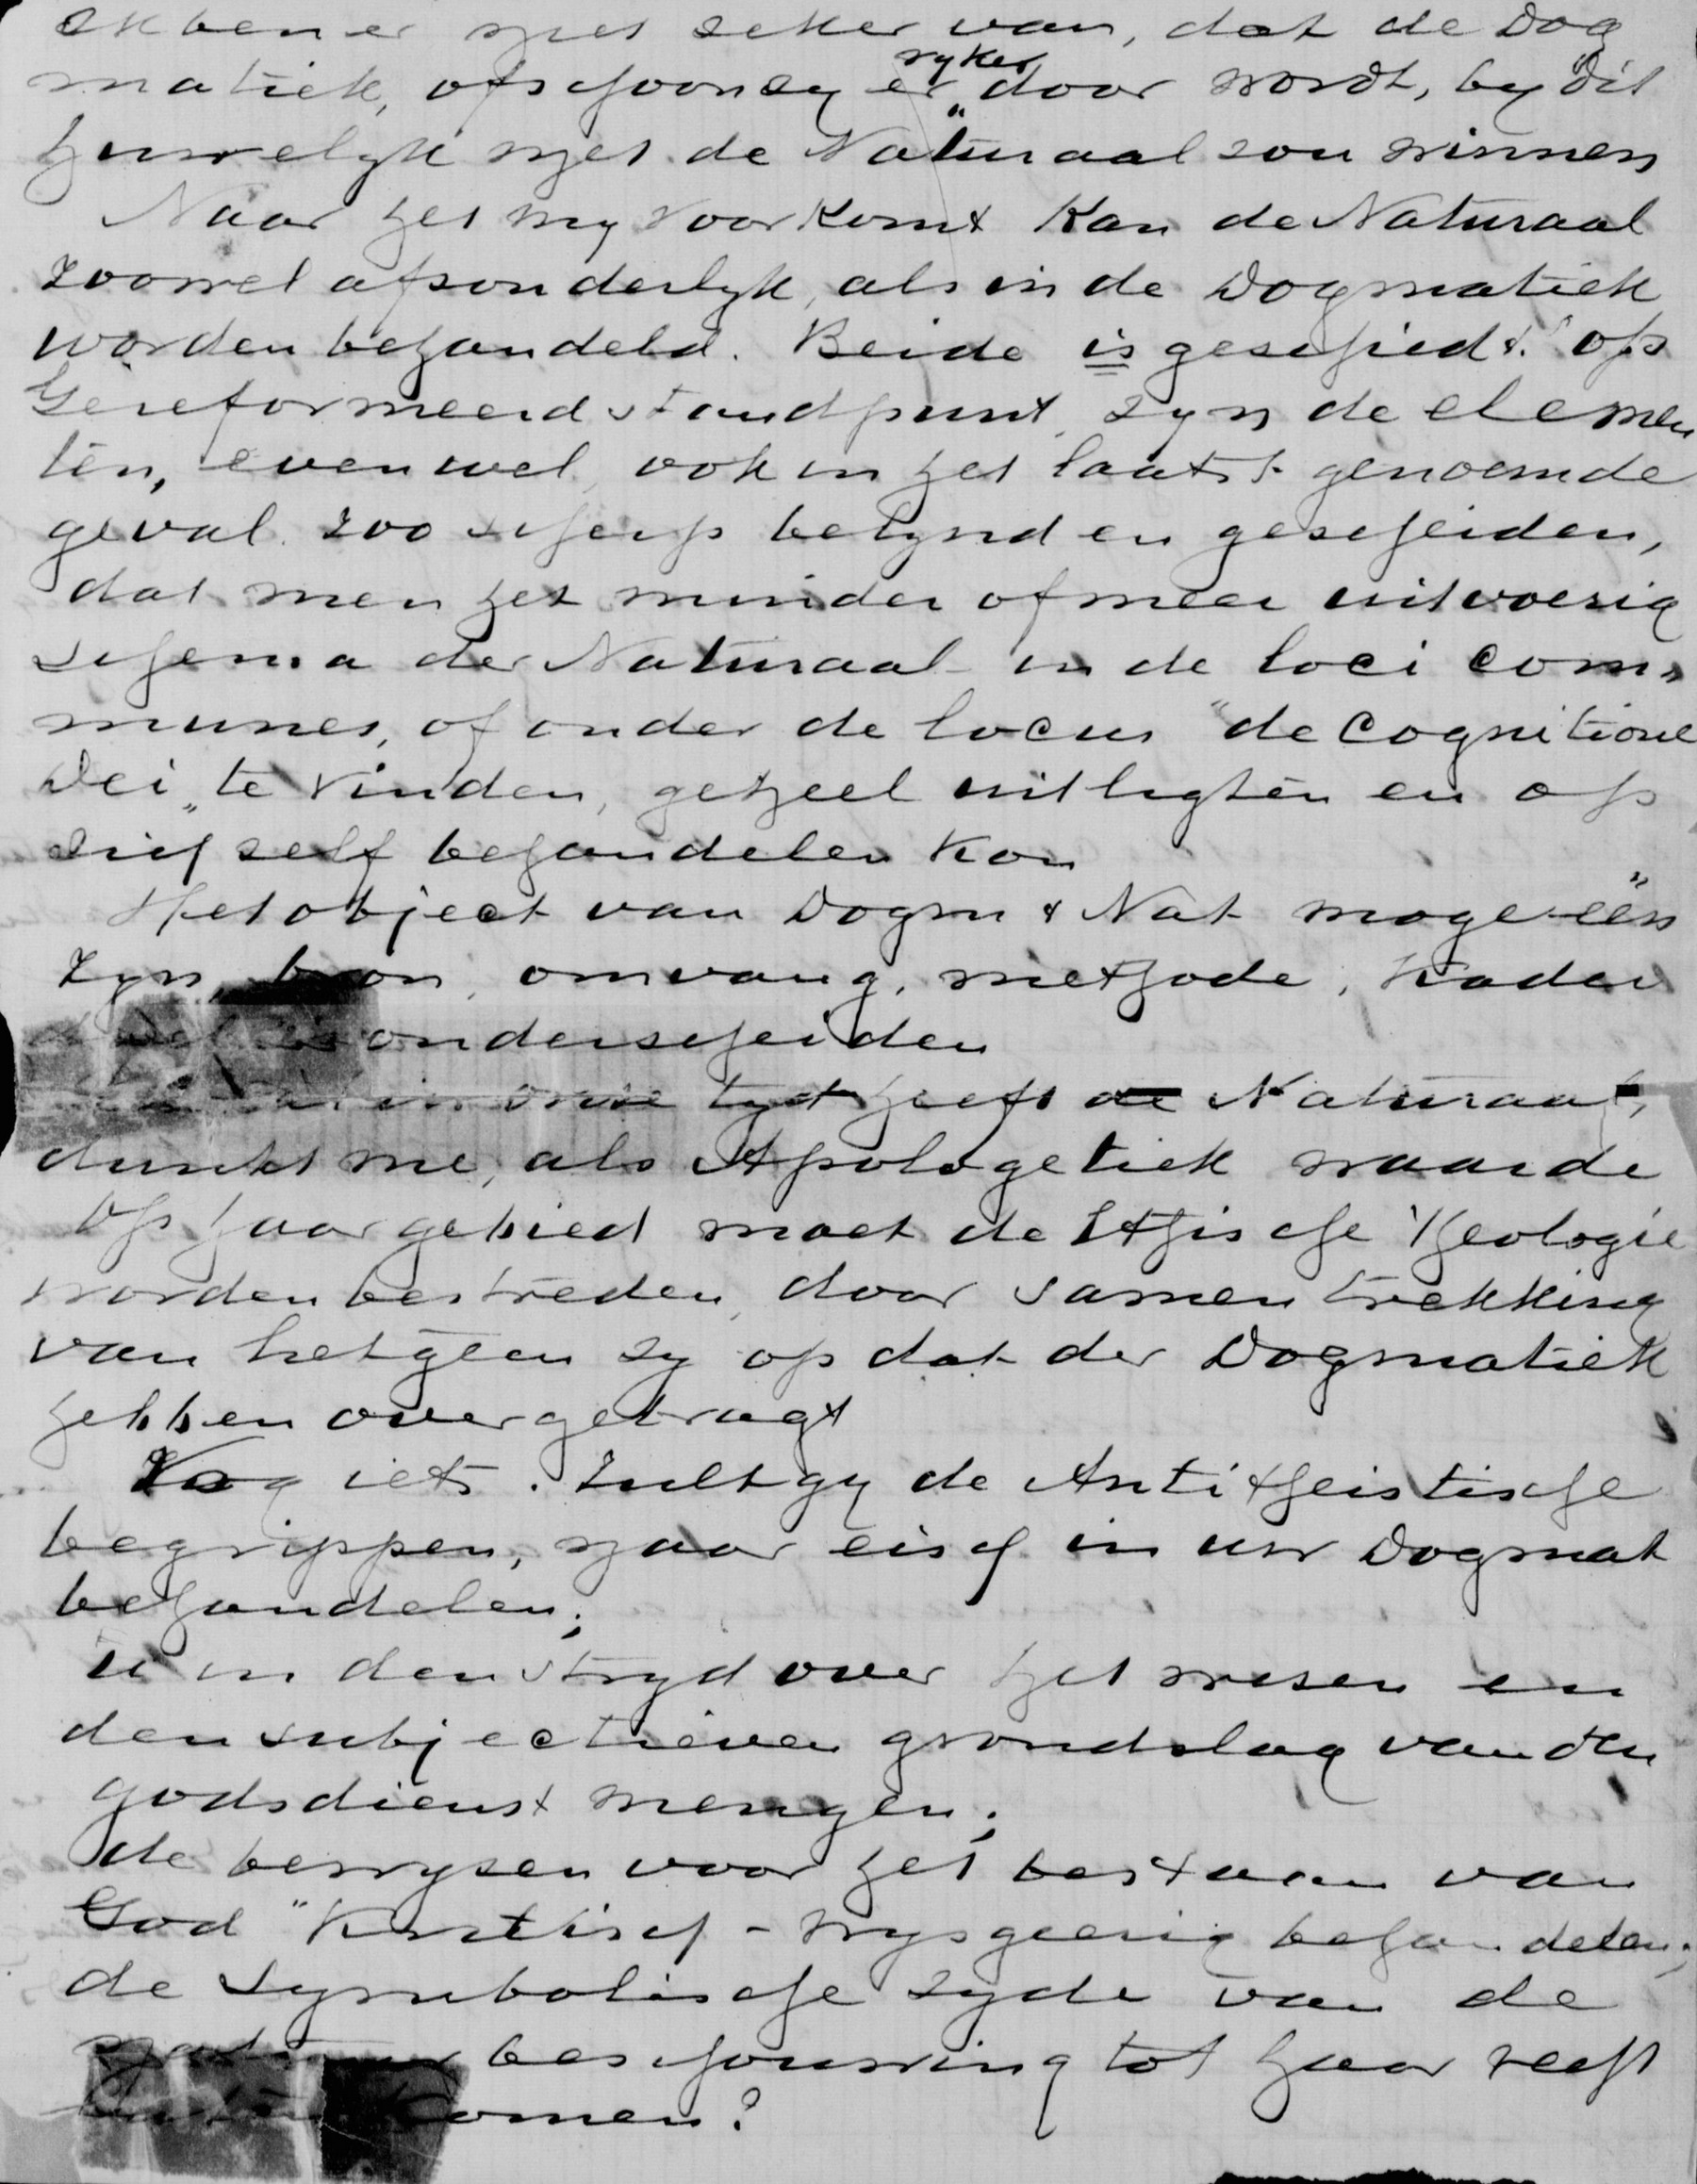 Ik ben er niet seker van, dat de Dog
matiek, ofschoon sy er ryker door wordt, by dit
"huwelyk" niet de Naturaal sou winnen
Naar het my voorkomt kan de Naturaal
zoowel afsonderlyk, als in de Dogmatiek
worden behandeld. Beide is geschiedt. Op
Gereformeerd standpunt, syn de elemen
ten, evenwel, ook in het laatst genoemde
geval zoo scherp belynd en gescheiden,
dat men het minder of meer uitvoerig
schema der Naturaal in de loci com„
munes, of onder de locus "de cognitione
Dei„ te vinden, geheel uitligten en op
sich self behandelen kon
Het object van Dogm & Nat moge één
zyn, bron, omvang, methode, kader
wel te onderscheiden
in onse tyd heeft de Naturaal,
dunkt me, als Apologetiek waarde
Op haar gebied moet de Ethische Theologie
worden bestreden, door samentrekking
van hetgeen sy op dat der Dogmatiek
hebben overgebragt
Nog iets. Zult gy de Antitheistische
begrippen, naar eisch in uw Dogmat
behandelen;
U in den stryd over het wesen en
den subjectieven grondslag van den
godsdienst mengen;
de bewysen voor het bestaan van
God "Kritisch-wysgeerig behandelen;
de symbolische syde van de
beschouwing tot haar regt
komen?